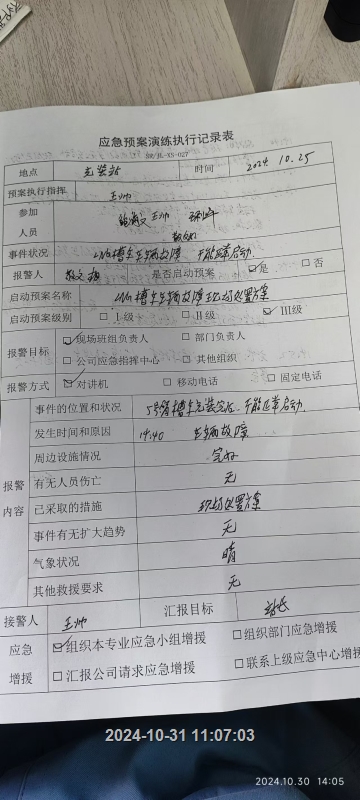 应急预案演练执行记录表
地点 充装站 时间 2024 10.25
预案执行指挥 王帅
参加人员 王帅
事件状况 LNG槽车车辆故障 不能正常启动
报警人 是否启动预案 ☑是 □否
启动预案名称 LNG槽车车辆故障现场处置方案
启动预案级别 □I级 □II级 ☑III级
报警目标 ☑现场班组负责人 □部门负责人
□公司应急指挥中心 □其他组织
报警方式 ☑对讲机 □移动电话 □固定电话
报警内容
事件的位置和状况 槽车充装完后,不能正常启动
发生时间和原因 14:40 车辆故障
周边设施情况 完好
有无人员伤亡 无
已采取的措施 现场处置方案
事件有无扩大趋势 无
气象状况 晴
其他救援要求 无
接警人 王帅 汇报目标 站长
应急增援 ☑组织本专业应急小组增援 □组织部门应急增援
□汇报公司请求应急增援 □联系上级应急中心增援
2024-10-31 11:07:03
2024.10.30 14:05